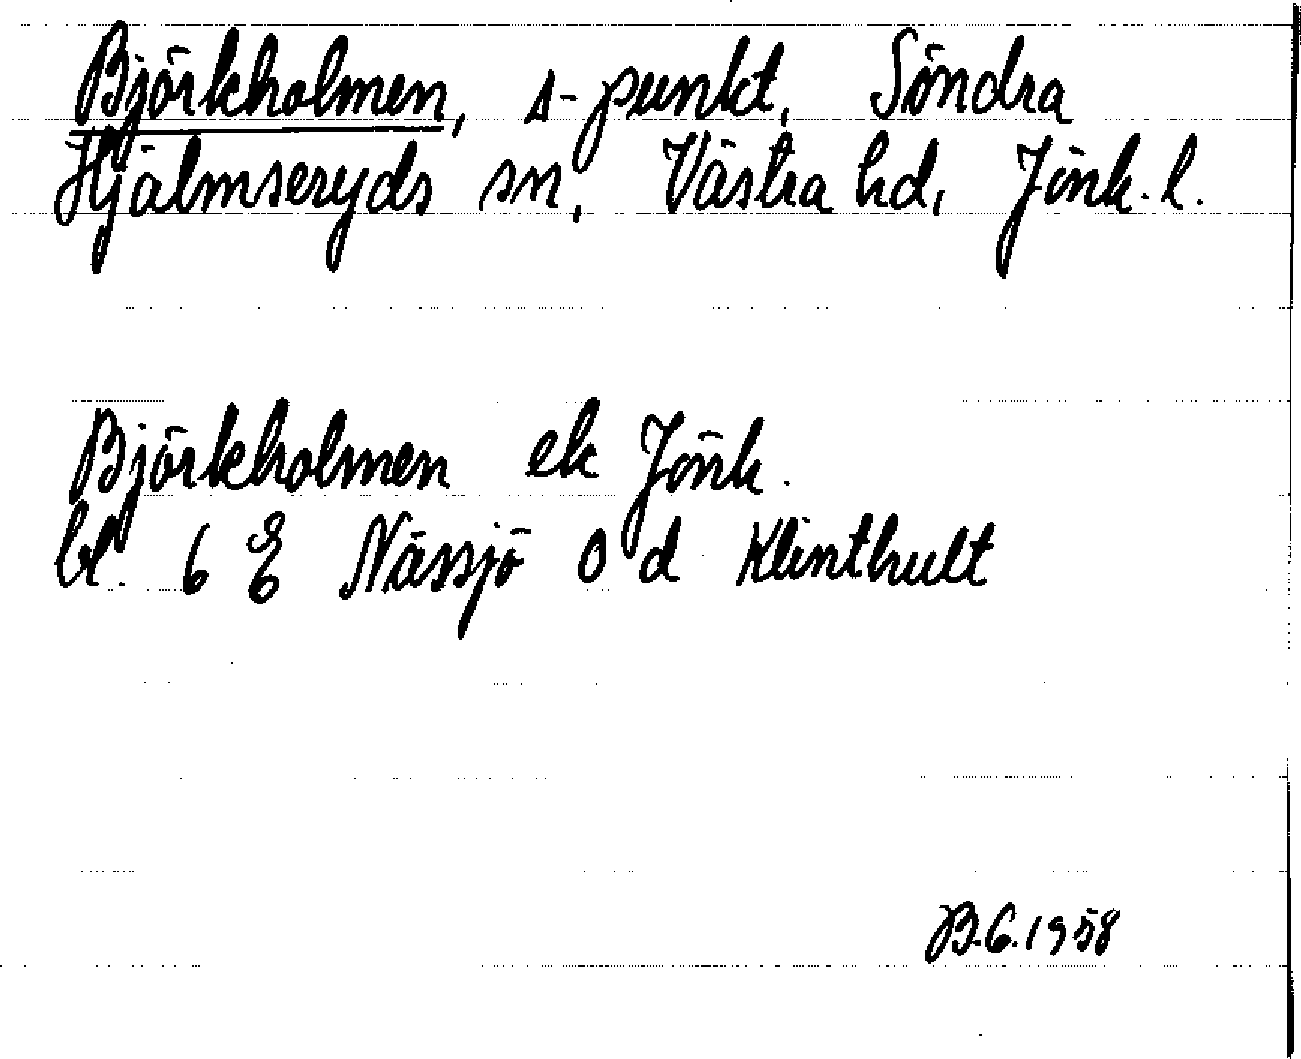 Björkholmen, s-punkt, Söndra
Hjälmseryds sn, Västra hd, Jönk. l.
Björkholmen ek Jönk.
bl. 6 E Nässjö 0 d Klinthult
B.G. 1958